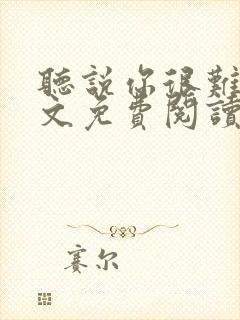 聽說你很難
文免費閱讀
賽尔